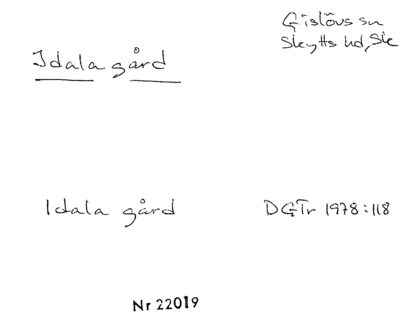 Gislövs sn
Skytts hd, Sk
Idala gård
Idala gård DGTr 1978:118
Nr 22019